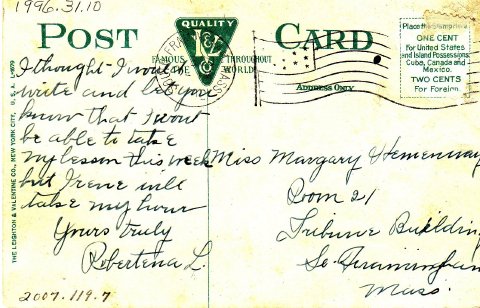 1996.31.10
POST CARD
QUALITY
V & L Co
FAMOUS THROUGHOUT
THE WORLD
ADDRESS ONLY
Place the Stamp here
ONE CENT
for United States
and Island Possessions,
Cuba, Canada and
Mexico.
TWO CENTS
For Foreign.
THE LEIGHTON & VALENTINE CO., NEW YORK CITY, U.S.A.
I thought I would
write and let you
know that I wont
be able to take
my lesson this week
but Irene will
take my hour
Yours truly
Robertena L.
Miss Margary Hemenway
Room 21
Tribune Building
So. Framingham
Mass.
2007.119.7